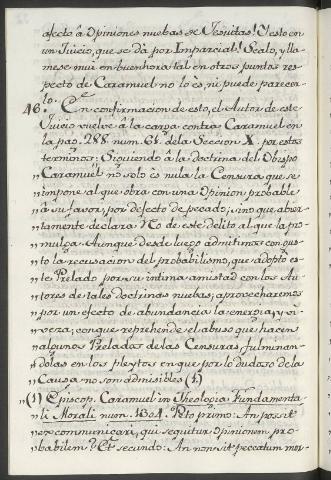 afecto â Opiniones nuebas de Jesuitas! Y esto en
un Juicio, que se dà por Imparcial! Sealo, y lla-
mese mui en buenhora tal en otros puntos: res-
pecto de Caramuel no lo ès, ni puede parecer-
lo.
46. En confirmacion de esto, el Autor de este
Juicio vuelve â la carga contra Caramuel en
la pag. 288. num. 68. de la Seccion X. por estos
terminos: Siguiendo â la doctrina del Obispo
„ Caramuel no solo es nula la Censura que se
„ impone al que obra con una Opinion probable
„ â su favor, por defecto de pecado, sino que abier-
„ tamente declara Reo de este delito al que la pro-
„ mulga. Aunque desde luego admitimos con gus-
„ to la recusacion del probabilismo, que adoptò es-
„ te Prelado por su intima amistad con los Au-
„ tores de tales doctrinas nuebas; aprovecharemos
„ por un efecto de abundancia la energia, y vi-
„ veza, con que reprehende el abuso que hacen
„ algunos Prelados de las Censuras, fulminan-
„ dolas en los pleytos en que por lo dudoso de la
„ Causa no son admisibles (1)
„ (1) Episcop. Caramuel in Theologia Fundamenta-
„ li Morali num. 1304. Peto primo: An possit
„ excommunicari, qui sequitur Opinionem pro-
„ babilem? Et secundo: An non sit peccatum mor-